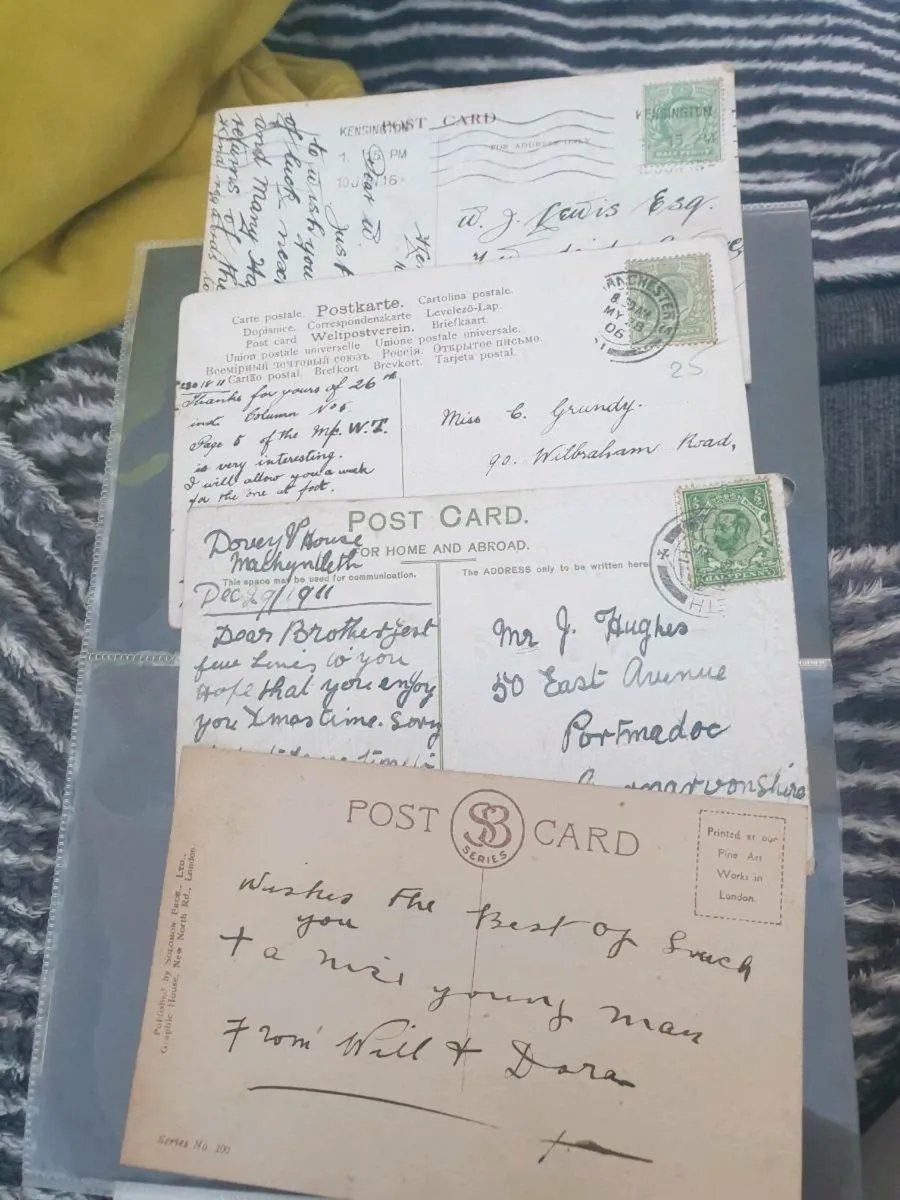 POST CARD
FOR ADDRESS ONLY
KENSINGTON
1. PM
KENSINGTON
HALF PENNY
Dear W.
Just
to wish you
of luck next
and Many Ha
returns of the
W. J. Lewis Esq.
Carte postale. Postkarte. Cartolina postale.
Dopisnice. Correspondenzkarte Levelező-Lap.
Post card Weltpostverein. Briefkaart.
Union postale universelle Unione postale universale.
Всемірный почтовый союзъ. Россія. Открытое письмо.
Cartão postal. Brefkort. Brevkort. Tarjeta postal.
MANCHESTER
MY 28
06
25
Thanks for yours of 26th
inst. Column No 5.
Page 5 of the Mp. W.T.
is very interesting.
I will allow you a week
for the one at foot.
Miss C. Grundy.
90. Wilbraham Road,
POST CARD.
FOR HOME AND ABROAD.
This space may be used for communication.
The ADDRESS only to be written here
HALFPENNY
Dovey House
Machynlleth
Dec 29/1911
Dear Brother Jest
few Lines to you
Hope that you enjoy
you Xmas time. Sorry
Mr J. Hughes
50 East Avenue
Portmadoc
POST SB SERIES CARD
Printed at our
Fine Art
Works in
London.
Published by Solomon Bros., Ltd.,
Graphic House, New North Rd., London.
Wishes The Best of Luck
you
+ a nice young man
From Will + Dora
Series No. 200